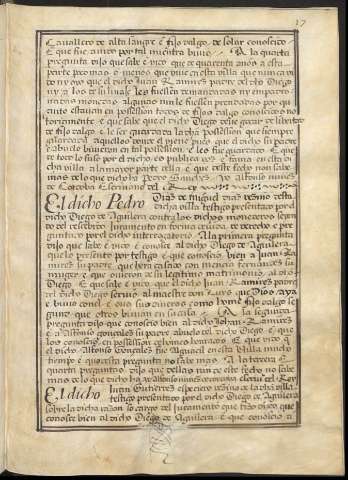 37
Cavallero de alta sangre E fijo dalgo de solar conoscido
E que fue avido por tal mientra bivio. A la quarta
pregunta dijo que sabe E vido que de quarenta años a esta
parte poco mas o menos que vive en esta villa que nunca vi
do ny oyo que el dicho Juan Ramires padre del dicho Diego
ny a los de su linaje les fuessen demandadas ny empadro
nadas monedas algunas nin le fuessen prendados por qu
anto estavan en possession todos de fijos dalgo conoscidos no
toriamente E que sabe que el dicho Diego deve gozar de libertad
de fijo dalgo E le ser guardada la dha possession que siempre
guardara aquellos donde el viene pues que el dicho su padre
E abuelo bivieron en tal possession E les fue guardado E que
de todo lo suso por el dicho es publica voz E fama en esta di
cha villa a la mayor parte della E que deste fecho non sabe
mas de lo que dicho ha Pedro Sanches yo Alfonso nunes
de Cordoba Escrivano del Rey
El dicho Pedro Dias de Miguel Dias vezino desta
dicha villa testigo presentado por el
dicho Diego de Aguilera contra los dichos monederos seyen
do del rescebido Juramento en forma devida de derecho E pre
guntado por el dicho interrogatorio. A la primera pregunta
dijo que sabe E vido E conosce al dicho Diego de Aguilera
que lo presento por testigo E que conoscio bien a Juan Ra
mires su padre que hera casado con mencia fernandes su
muger E que ovieron de su legitimo matrimonio al dicho
Diego E que sabe E vido que el dicho Juan Ramires padre
del dicho Diego servio al maestre don Luys que Dios aya
E bivio con el E dio sus dineros como home fijo dalgo se
gund que otros bivian en su casa. A la segunda
pregunta dijo que conoscio bien al dicho Johan Ramires
E a Alfonso gonzales su padre abuelo del dicho Diego E que
los conoscio en possession de homes honrados E que vido q
el dicho Alfonso Gonzales fue Alguacil en esta villa mucho
tiempo E desta pregunta no sabe mas. A la tercera E
quarta preguntas dijo que dellas nin de este fecho no sabe
mas de lo que dicho ha
El dicho Juan Gutierres especiero vezino de la dha villa
testigo presentado por el dicho Diego de Aguilera
sobre la dicha razon so cargo del Juramento que fizo dijo que
conosce bien al dicho Diego de Aguilera E que conoscio a